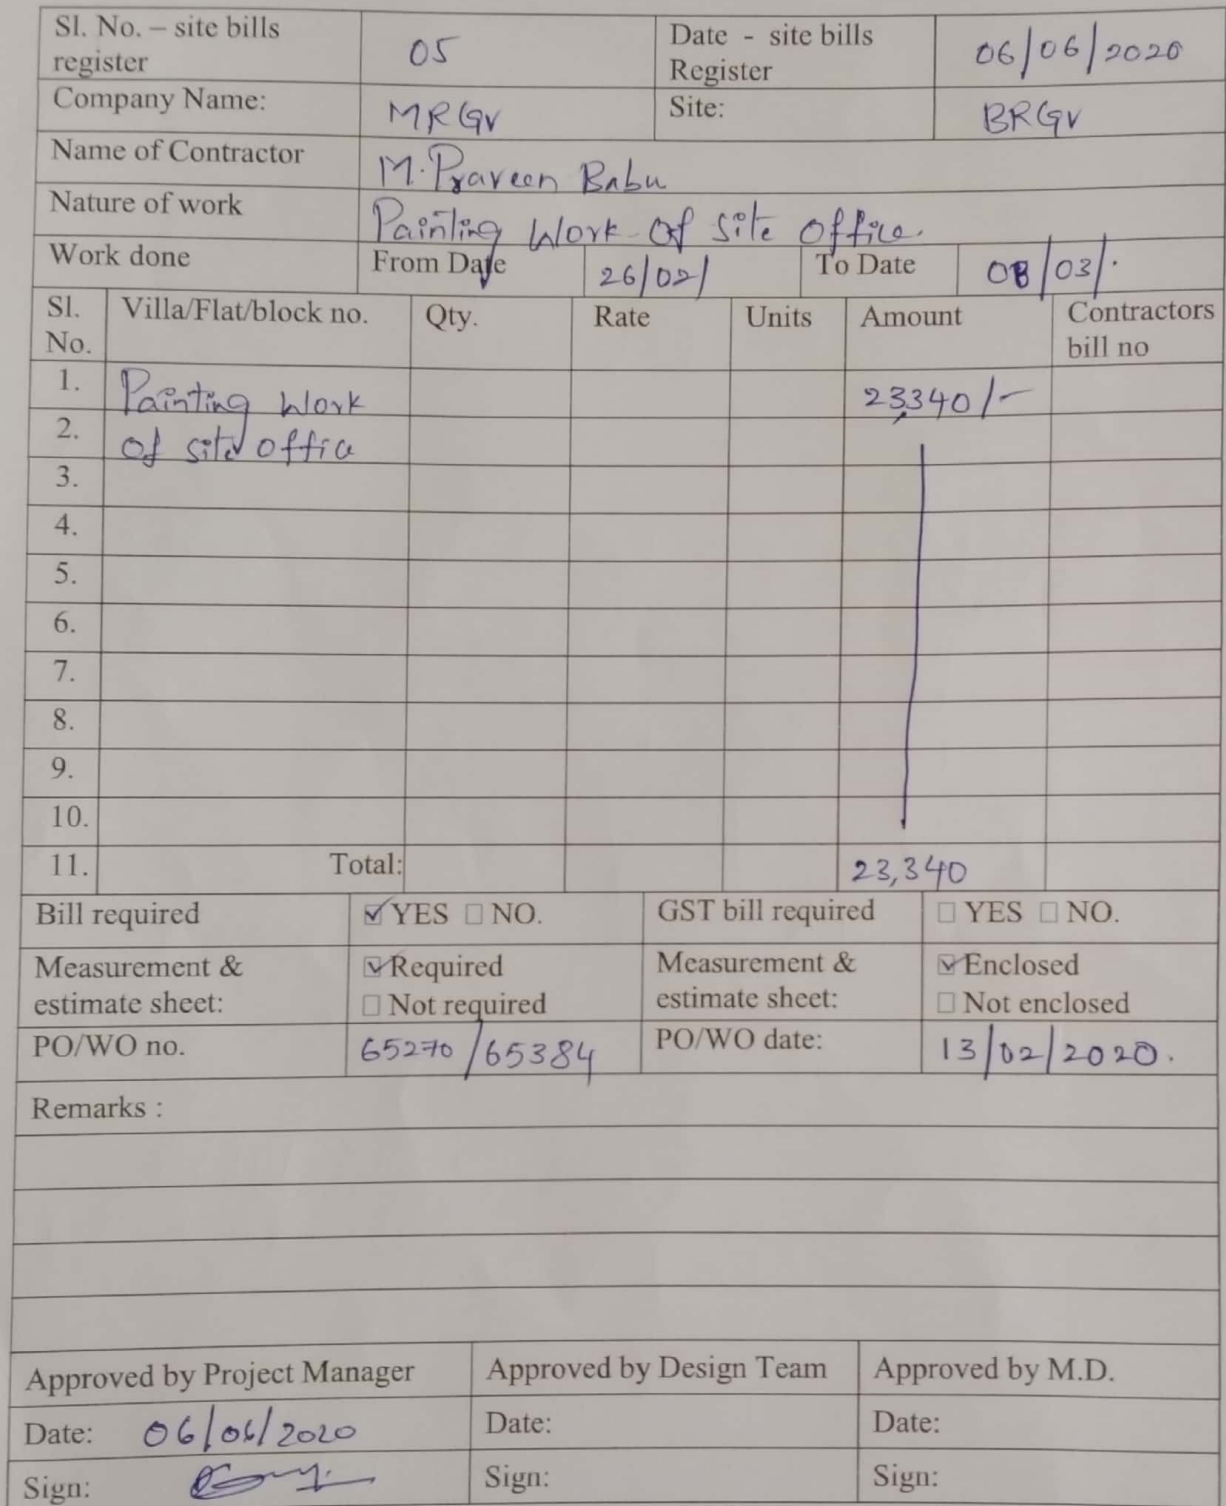 Sl. No. – site bills register 05 Date - site bills Register 06/06/2020
Company Name: MRGV Site: BRGV
Name of Contractor M. Praveen Babu
Nature of work Painting Work Of site office.
Work done From Date 26/02/ To Date 08/03/.
Sl. No. Villa/Flat/block no. Qty. Rate Units Amount Contractors bill no
1. Painting Work 23,340/-
2. Of site office
3.
4.
5.
6.
7.
8.
9.
10.
11. Total: 23,340
Bill required ☑ YES ☐ NO. GST bill required ☐ YES ☐ NO.
Measurement & estimate sheet: ☑ Required ☐ Not required Measurement & estimate sheet: ☑ Enclosed ☐ Not enclosed
PO/WO no. 65270/65384 PO/WO date: 13/02/2020.
Remarks :
Approved by Project Manager Approved by Design Team Approved by M.D.
Date: 06/06/2020 Date: Date:
Sign: Sign: Sign: